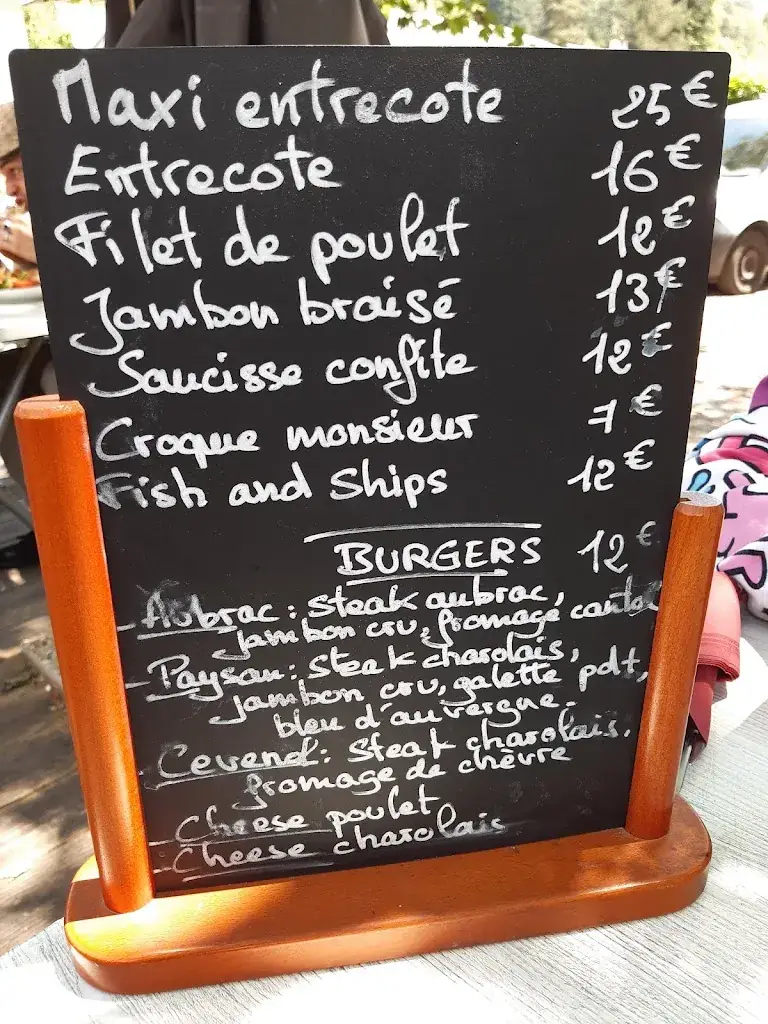 Maxi entrecote 25€
Entrecote 16€
Filet de poulet 12€
Jambon braisé 13€
Saucisse confite 12€
Croque monsieur 7€
Fish and Ships 12€
BURGERS 12€
- Aubrac : steak aubrac,
jambon cru, fromage cantal
- Paysan : steak charolais,
jambon cru, galette pdt,
bleu d'auvergne.
- Cevenol : steak charolais,
fromage de chèvre
- Cheese poulet
- Cheese charolais